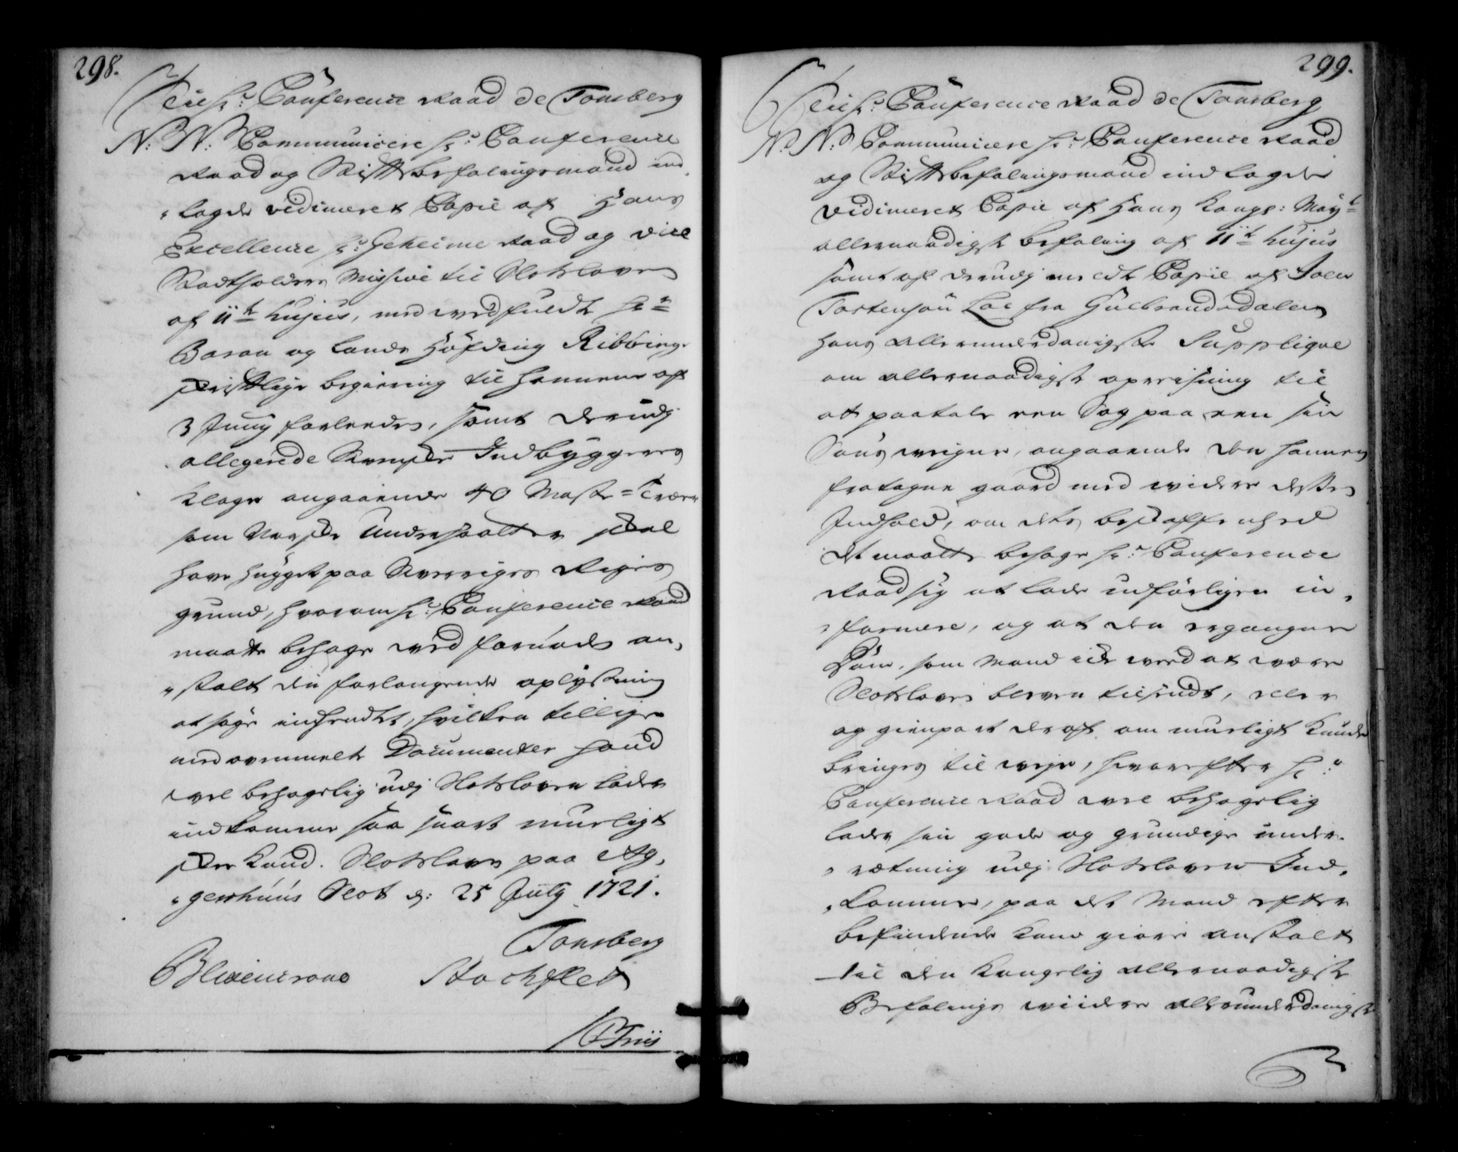 298.
Til Hr: Conference Raad de Tonsberg
N: N: Communicere Hr: Conference
Raad og Stiftsbefalingsmand ind
lagde vidimeret Copie af Hans
Excellence Hr: Geheime Raad og Vice
Stadtholders Missive til Slotsloven
af 11te hujus, med vedfuldt Hr
Baron og Lands Höfding Ribbings
skriftlige begiering til hannem af
3 Juny forleeden, samt derudj
allegerede Svenske Indbyggeres
Klage angaaende 40 Maste-Træer
som Norske Undersaatter skal
have hugget paa Sverriges Riges
grund, hvorom Hr: Conference Raad
maatte behage ved fornöden an,
stalt den forlangende oplysning
at faae indhendtet, hvilken tillige
med ovenmelte Documenter hand
vel behagelig udj Slotsloven lader
indkomme saa snart mueligt
skee kand. Slotsloven paa Ag,
gershuus Slot d: 25 July 1721.
Tonsberg
Blixencrone Stockfleth
299.
Til Hr: Conference Raad de Tonsberg
N: N: Communicere Hr: Conference Raad
og Stiftsbefalingsmand indlagde
vidimeret Copie af Hans Kongl: Mayts
allernaadigste befaling af 11te hujus
samt af derudj meldt Copie af Joen
Tostensön Loe fra Gulbrandsdalen
hans allerunderdanigste Supplique
om allernaadigst opreisning til
at paatale een Sag paa een sin
Söns vegne, angaaende den hannem
fratagne gaard med videre dessen
Indhold, om dets beskaffenhed
det maatte behage Hr: Conference
Raad sig at lade udförligen in,
formere, og at den ergangne
Dom, som Mand ick veed at være
Slotsloven bleven tilsendt, eller
og gienpart deraf om mueligt kunde
bringes til veje, hvorefter Hr:
Conference Raad vel behagelig
lader sin gode og grundige under,
retning udj Slotsloven Ind,
komme, paa det Mand efter
befindende kand giöre anstalt
til den Kongelig allernaadigste
Befalings viidere allerunderdanigste